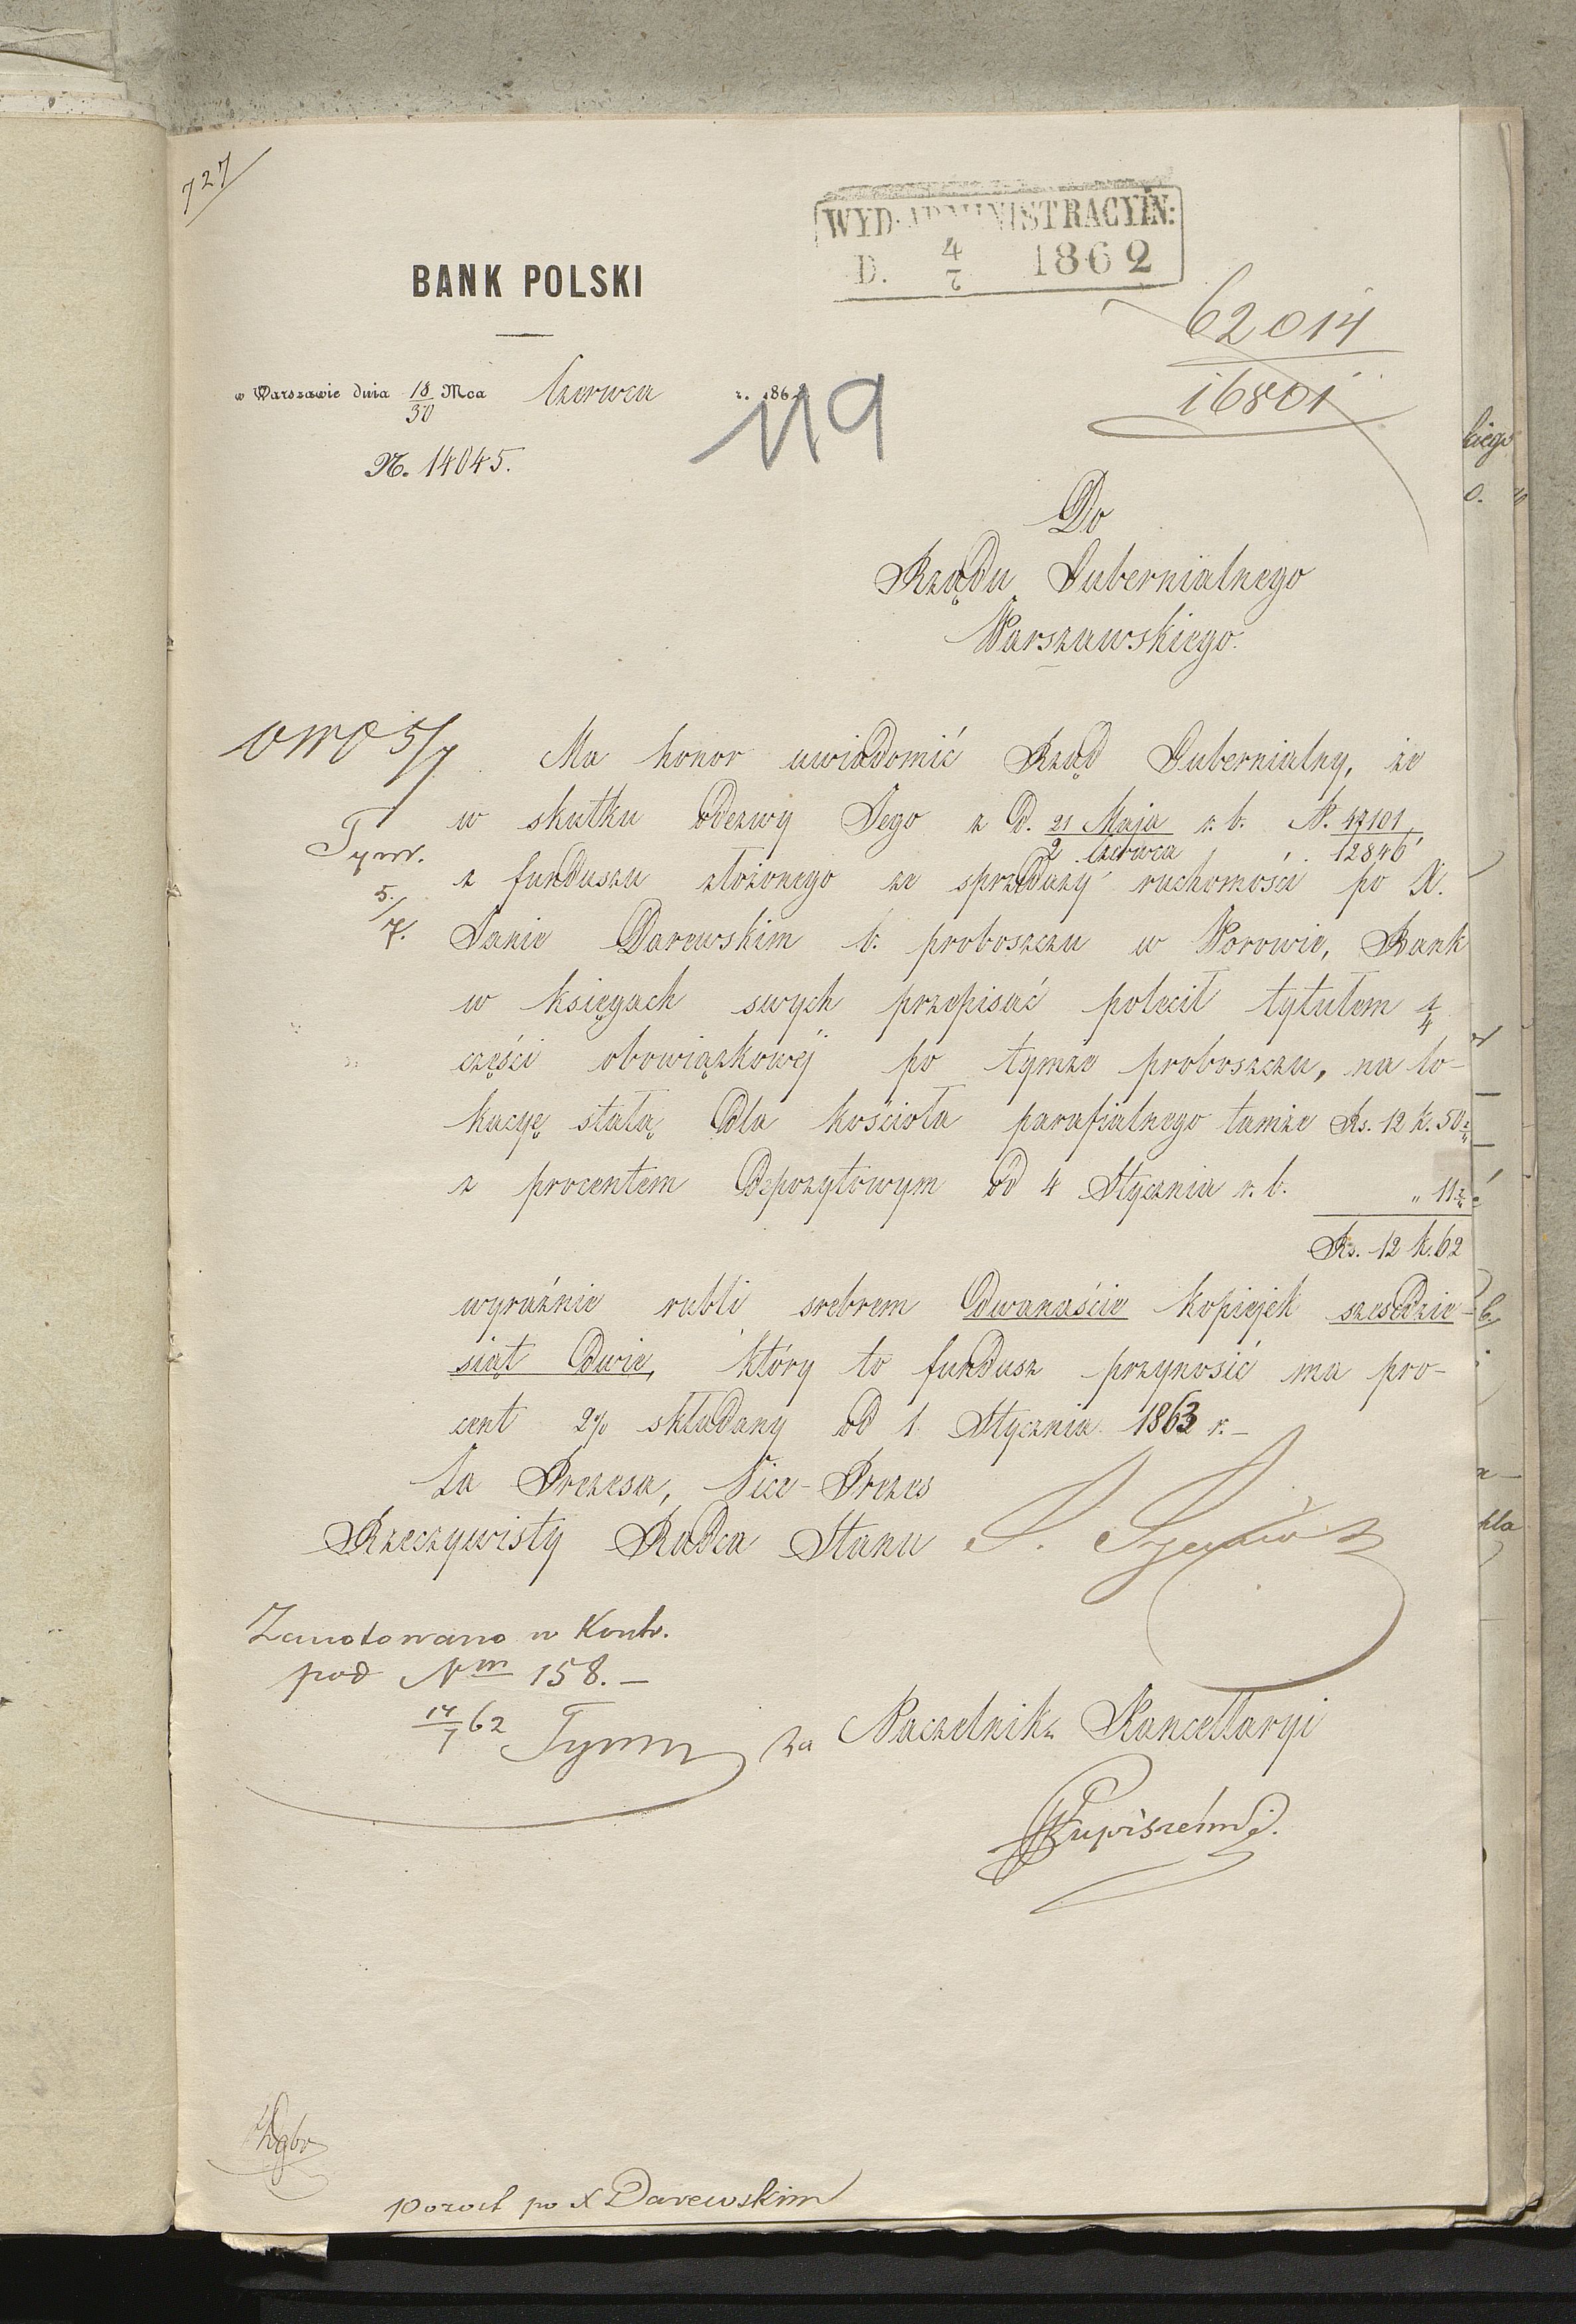 727
WYD. ADMINISTRACYIN:
D. 4/7 1862
BANK POLSKI
62014
16801
w Warszawie dnia 18/30 Mca Czerwca r. 1862
119
N. 14045.
Do
Rządu Gubernialnego
Warszawskiego.
5/7
Ma honor uwiadomić Rząd Gubernialny, że
w skutku odezwy Jego z d. 21 Maja/2 Czerwca r. b. N. 47101/12846
Tym.
5/7.
z funduszu złożonego ze sprzedaży ruchomości po X.
Janie Darewskim b. proboszczu w Worowie, Bank
w księgach swych przepisać polecił tytułem 1/4
części obowiązkowéj po tymże proboszczu, na lo-
kacyę stałą dla kościoła parafialnego tamże Rs. 12 k. 50 2/4
z procentem depozytowym od 4 Stycznia r. b. " 11 2/4
Rs. 12 k. 62
wyraźnie rubli srebrem dwanaście kopiejek sześćdzie-
siąt dwie, który to fundusz przynosić ma pro-
cent 2% składany od 1 Stycznia 1863 r.-
Za Prezesa, Vice-Prezes
Rzeczywisty Radca Stanu
Zanotowano w Kontr.
pod Nm 158.-
62 Tymm
za Naczelnika Kancellaryi
po X Darewskim